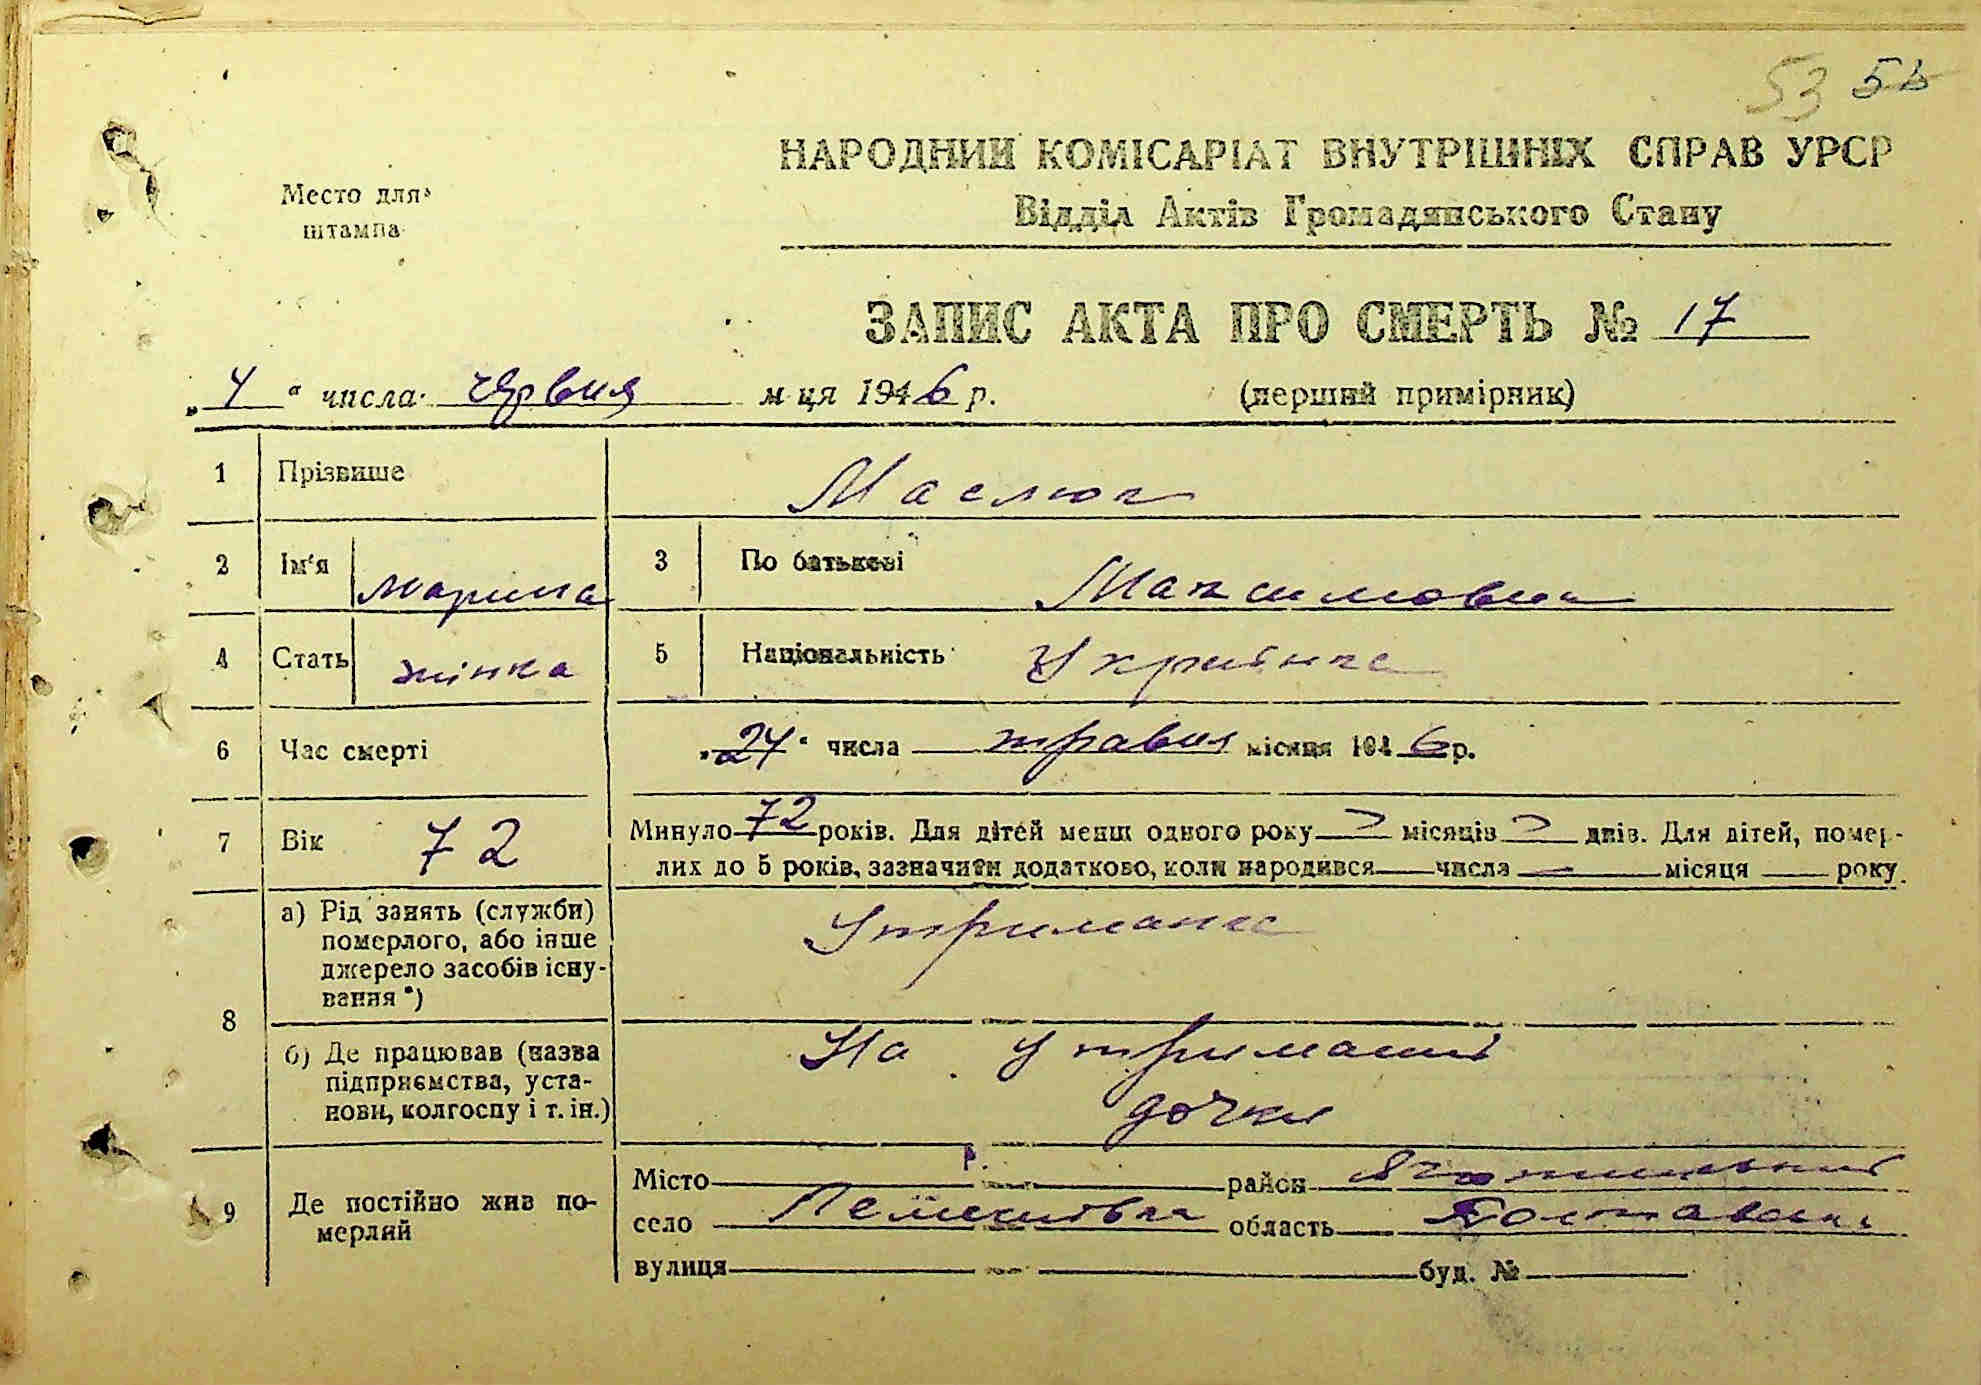 53 55
Место для
штампа
НАРОДНИЙ КОМІСАРІАТ ВНУТРІШНІХ СПРАВ УРСР
Відділ Актів Громадянського Стану
ЗАПИС АКТА ПРО СМЕРТЬ № 17
„4“ числа червня м-ця 1946 р. (перший примірник)
1 Прізвище Маслюк
2 Ім'я Марина 3 По батькові Максимовна
4 Стать жінка 5 Національність Українка
6 Час смерті „24“ числа травня місяця 1946 р.
7 Вік 72 Минуло 72 років. Для дітей менш одного року — місяців — днів. Для дітей, помер-
лих до 5 років, зазначити додатково, коли народився — числа — місяця — року
8 а) Рід занять (служби)
померлого, або інше
джерело засобів існу-
вання*)
Утриманка
б) Де працював (назва
підприємства, уста-
нови, колгоспу і т. ін.)
На утриманні
дочки
9 Де постійно жив по-
мерлий
Місто район Яготинський
село Лемешівка область Полтавська
вулиця буд. №